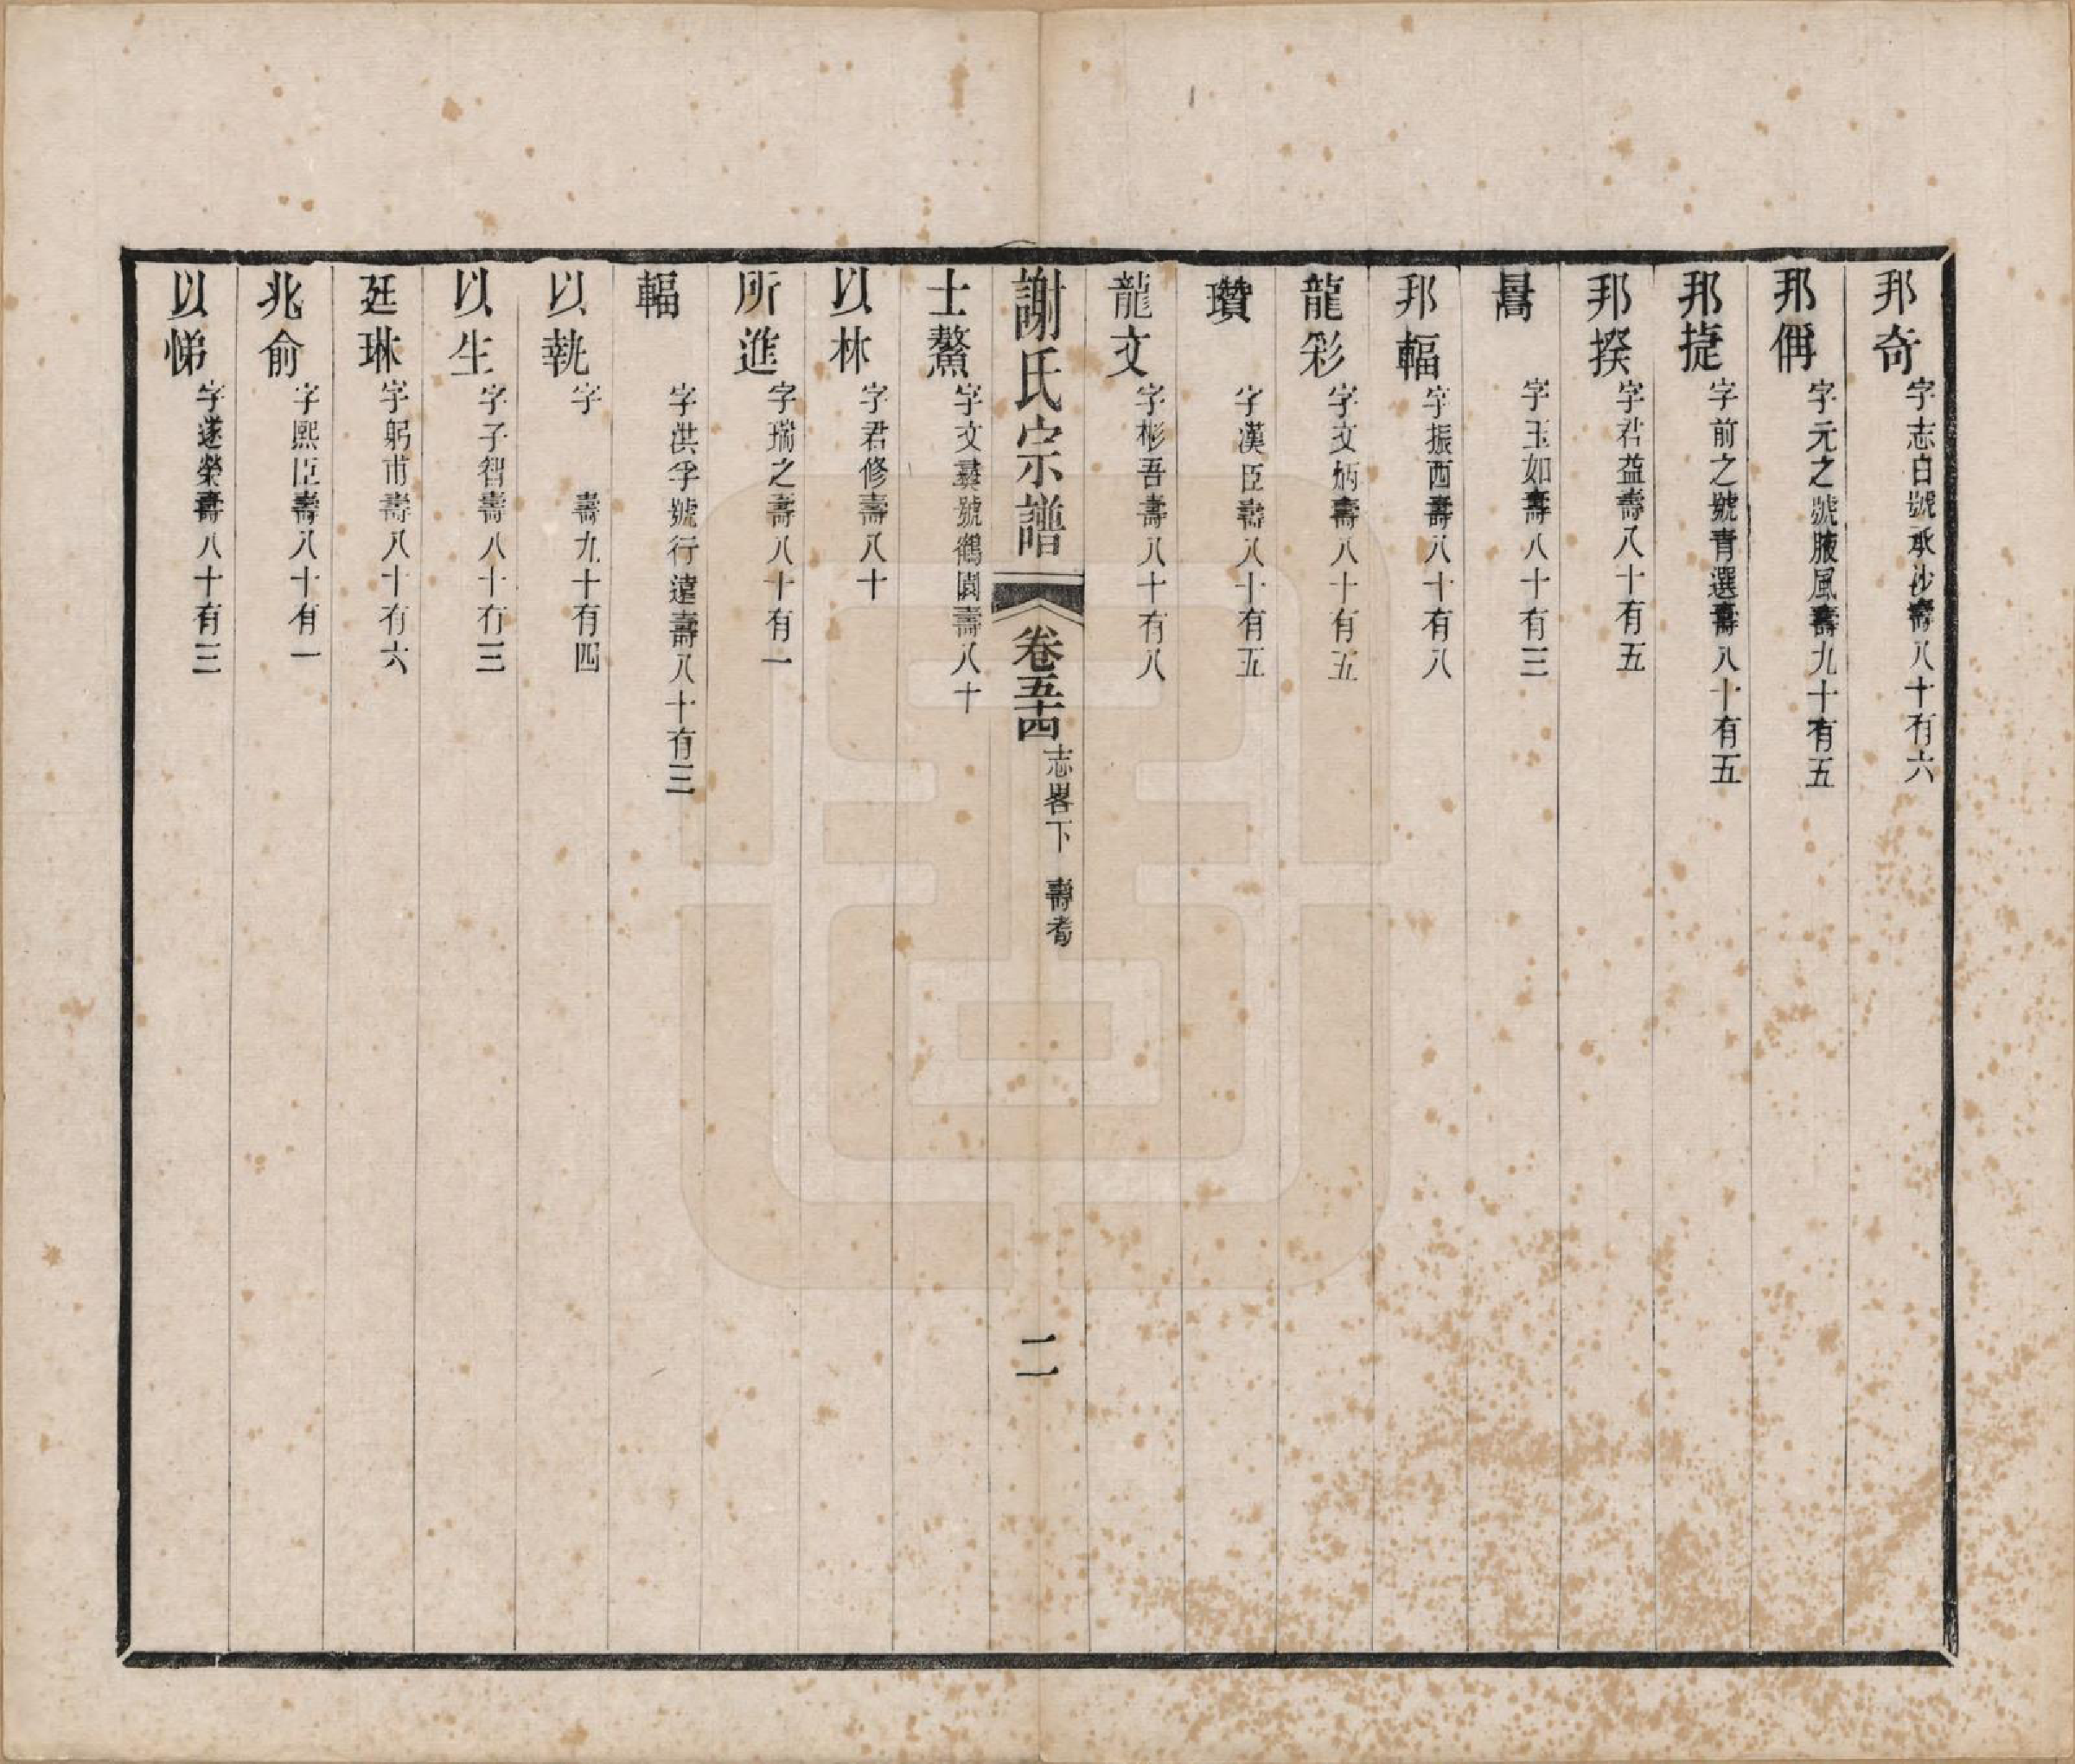 邦奇 字志白號承沙壽八十有六
邦偁 字元之號腋風壽九十有五
邦捷 字前之號青選壽八十有五
邦揆 字君益壽八十有五
暠 字玉如壽八十有三
邦輻 字振西壽八十有八
龍彩 字文炳壽八十有五
瓚 字漢臣壽八十有五
龍文 字彬吾壽八十有八
謝氏宗譜 卷五十四 志畧下 壽耇 二
士鰲 字文彛號鶴園壽八十
以林 字君修壽八十
所進 字瑞之壽八十有一
輻 字洪孚號行遠壽八十有三
以執 字 壽九十有四
以生 字子智壽八十有三
廷琳 字躬甫壽八十有六
兆俞 字熙臣壽八十有一
以悌 字遂榮壽八十有三